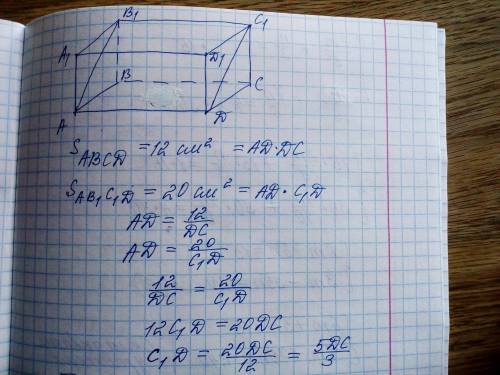 B₁ C₁
A₁ D₁
B C
A D
S_ABCD = 12 см² = AD·DC
S_AB₁C₁D = 20 см² = AD·C₁D
AD = 12/DC
AD = 20/C₁D
12/DC = 20/C₁D
12C₁D = 20DC
C₁D = 20DC/12 = 5DC/3